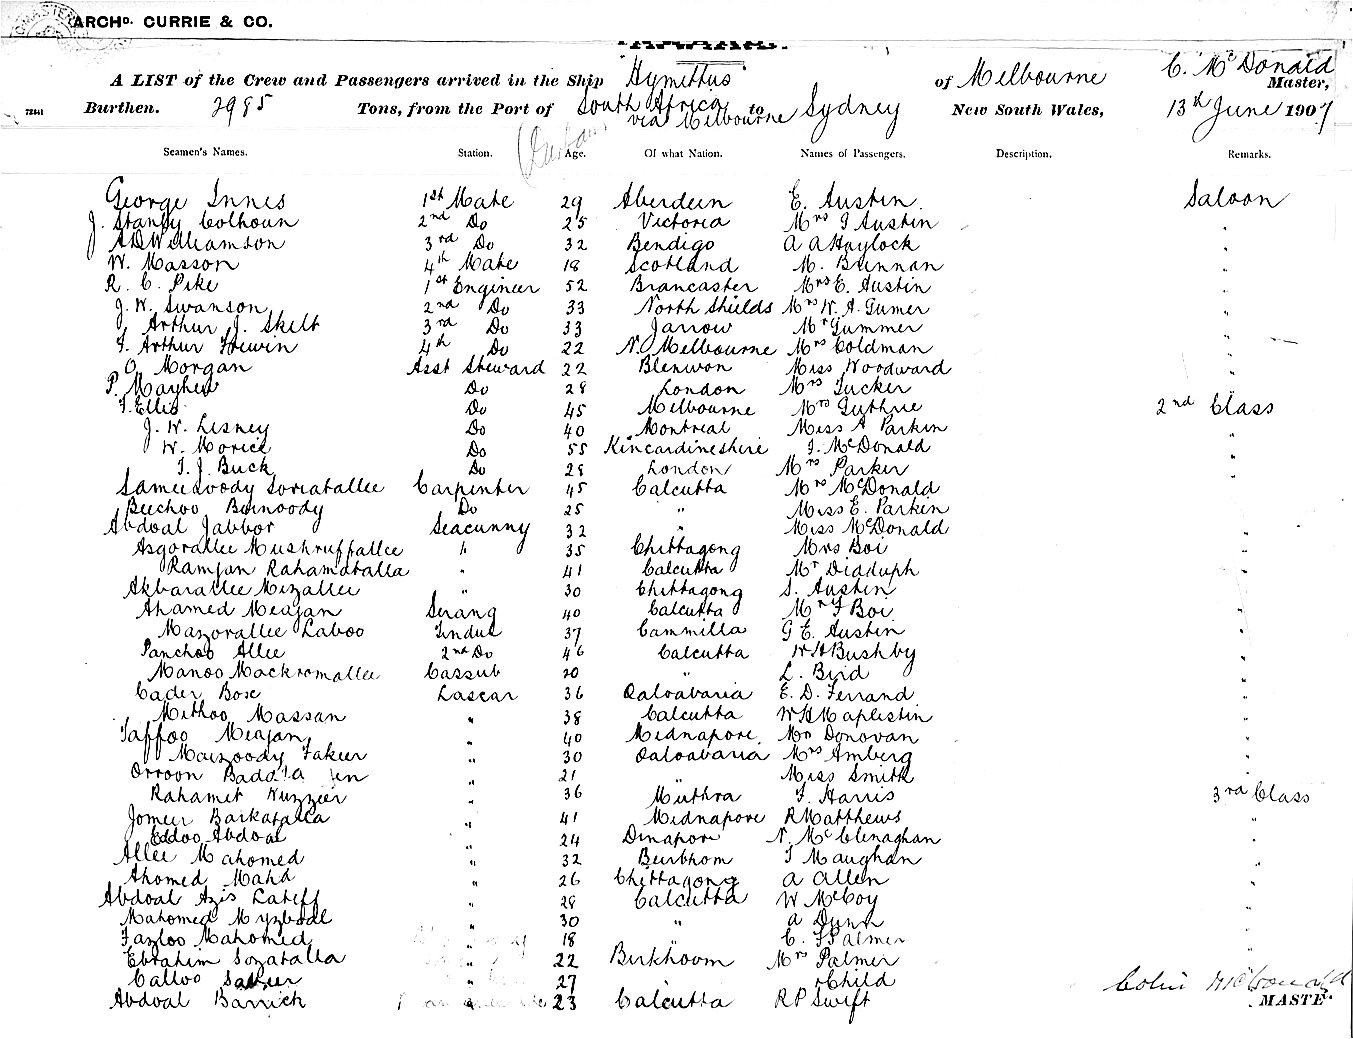 ARCHD. CURRIE & CO.
A LIST of the Crew and Passengers arrived in the Ship "Hymettus" of Melbourne C. McDonald Master,
Burthen. 2985 Tons, from the Port of South Africa via Melbourne to Sydney New South Wales, 13th June 1907
Seamen's Names. Station. Age. Of what Nation. Names of Passengers. Description. Remarks.
George Innes 1st Mate 29 Aberdeen E. Austin. Saloon
J. Stanly Colhoun 2nd Do 25 Victoria Mrs J Austin "
A D Williamson 3rd Do 32 Bendigo A A Haylock "
W. Masson 4th Mate 18 Scotland M. Brennan "
R. C. Pike 1st Engineer 52 Brancaster Mrs E. Austin "
J. W. Swanson 2nd Do 33 North Shields Mrs W. A. Gumer "
Arthur J. Skelt 3rd Do 33 Jarrow Mr Gummer "
F. Arthur 4th Do 22 N. Melbourne Mrs Coldman "
O. Morgan Asst Steward 22 Miss Woodward "
P. Mayhew Do 28 London Mrs Tucker "
J. Ellis Do 45 Melbourne Mrs Guthrie 2nd Class
J. W. Lisney Do 40 Montreal Miss A Parkin "
W. Morice Do 55 Kincardineshire J. McDonald "
T. J. Buck Do 28 London Mrs Parker "
Sameesoody Soriatallee Carpenter 45 Calcutta Mrs McDonald
Beechoo Burnoody Do 25 " Miss E. Parkin
Abdoal Jabbor Seacunny 32 " Miss McDonald
Asgorallee Mushruffallee " 35 Chittagong Mrs Boi "
Ramjan Rahamatalla " 41 Calcutta Mr Diaduph "
Akbarallee Mizallee " 30 Chittagong S. Austin "
Ahamed Meajan Serang 40 Calcutta Mr F Boi "
Mazorallee Laboo Tindal 37 Cammilla G E. Austin "
Panchoo Allee 2nd Do 46 Calcutta W H Bushby "
Manoo Mackromallee Cassub 20 " L. Bird "
Cader Bose Lascar 36 Daloabaria E. D. Ferrand "
Mithoo Massan " 38 Calcutta W H Maplestin "
Jaffoo Meajan " 40 Midnapore Mrs Donovan "
Maizoody Fakeer " 30 Daloabaria Mrs Amberg "
Orroon " 21 " Miss Smith "
Rahamet Nuzzier " 36 Muthra J. Harris 3rd Class
Jomeer Barkatalla " 41 Midnapore R Matthews "
Eddoo Abdoal " 24 Dinapore N. McClenaghan "
Allee Mahomed " 32 Beerbhom J Maughan "
Ahomed Mahd " 26 Chittagong A Allen "
Abdoal Azis Lateff " 28 Calcutta W McCoy "
Mahomed " 30 " A Dunn "
Fazloo Mahomed " 18 " C. F Palmer "
Ebrahim Sozatalla " 22 Birkhoom Mrs Palmer "
Calloo " 27 " Child Colin McDonald
Abdoal Barrick 23 Calcutta R P Swift MASTE